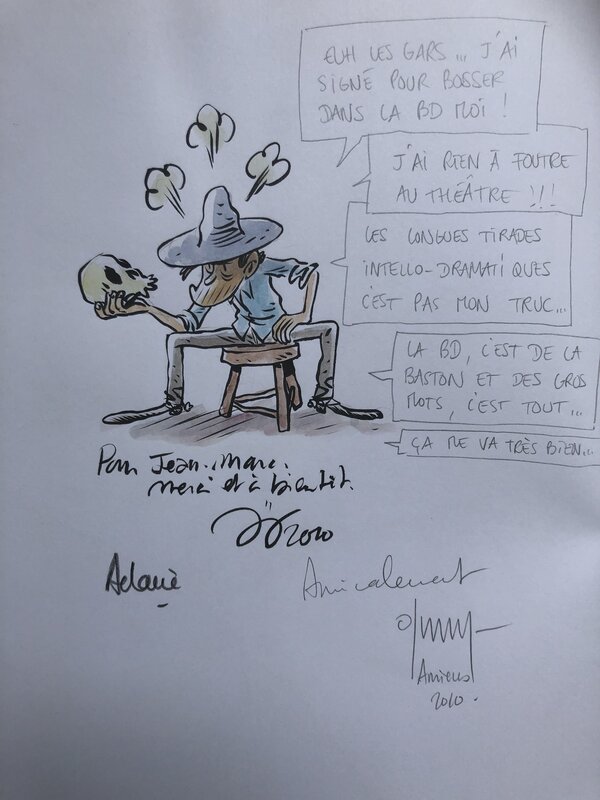 EUH LES GARS... J'AI
SIGNÉ POUR BOSSER
DANS LA BD MOI !
J'AI RIEN À FOUTRE
AU THÉÂTRE !!!
LES LONGUES TIRADES
INTELLO-DRAMATIQUES
C'EST PAS MON TRUC...
LA BD, C'EST DE LA
BASTON ET DES GROS
MOTS, C'EST TOUT...
ÇA ME VA TRÈS BIEN...
Pour Jean-Marc.
merci et à bientôt.
2010
Amicalement
Amiens
2010.